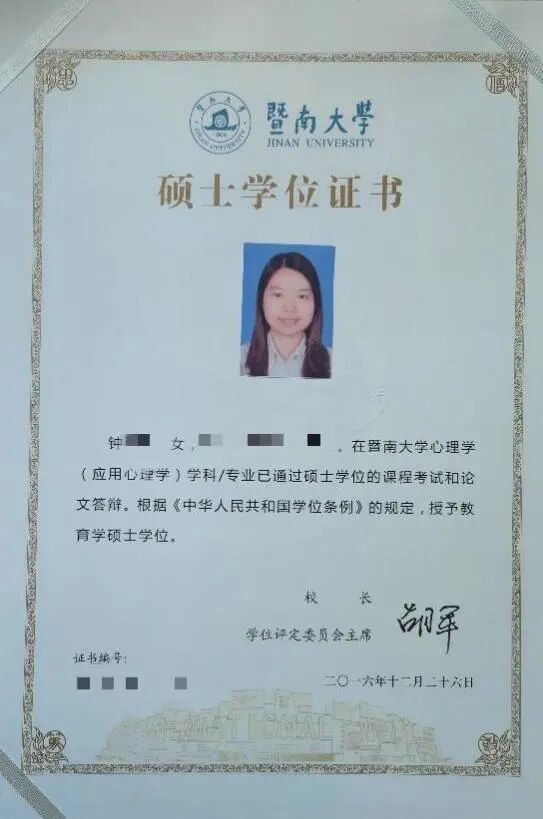 暨南大学
JINAN UNIVERSITY
暨南大學
JINAN UNIVERSITY
硕士学位证书
钟 女， 。在暨南大学心理学
（应用心理学）学科/专业已通过硕士学位的课程考试和论
文答辩。根据《中华人民共和国学位条例》的规定，授予教
育学硕士学位。
校 长
学位评定委员会主席
胡军
证书编号：
二〇一六年十二月二十六日